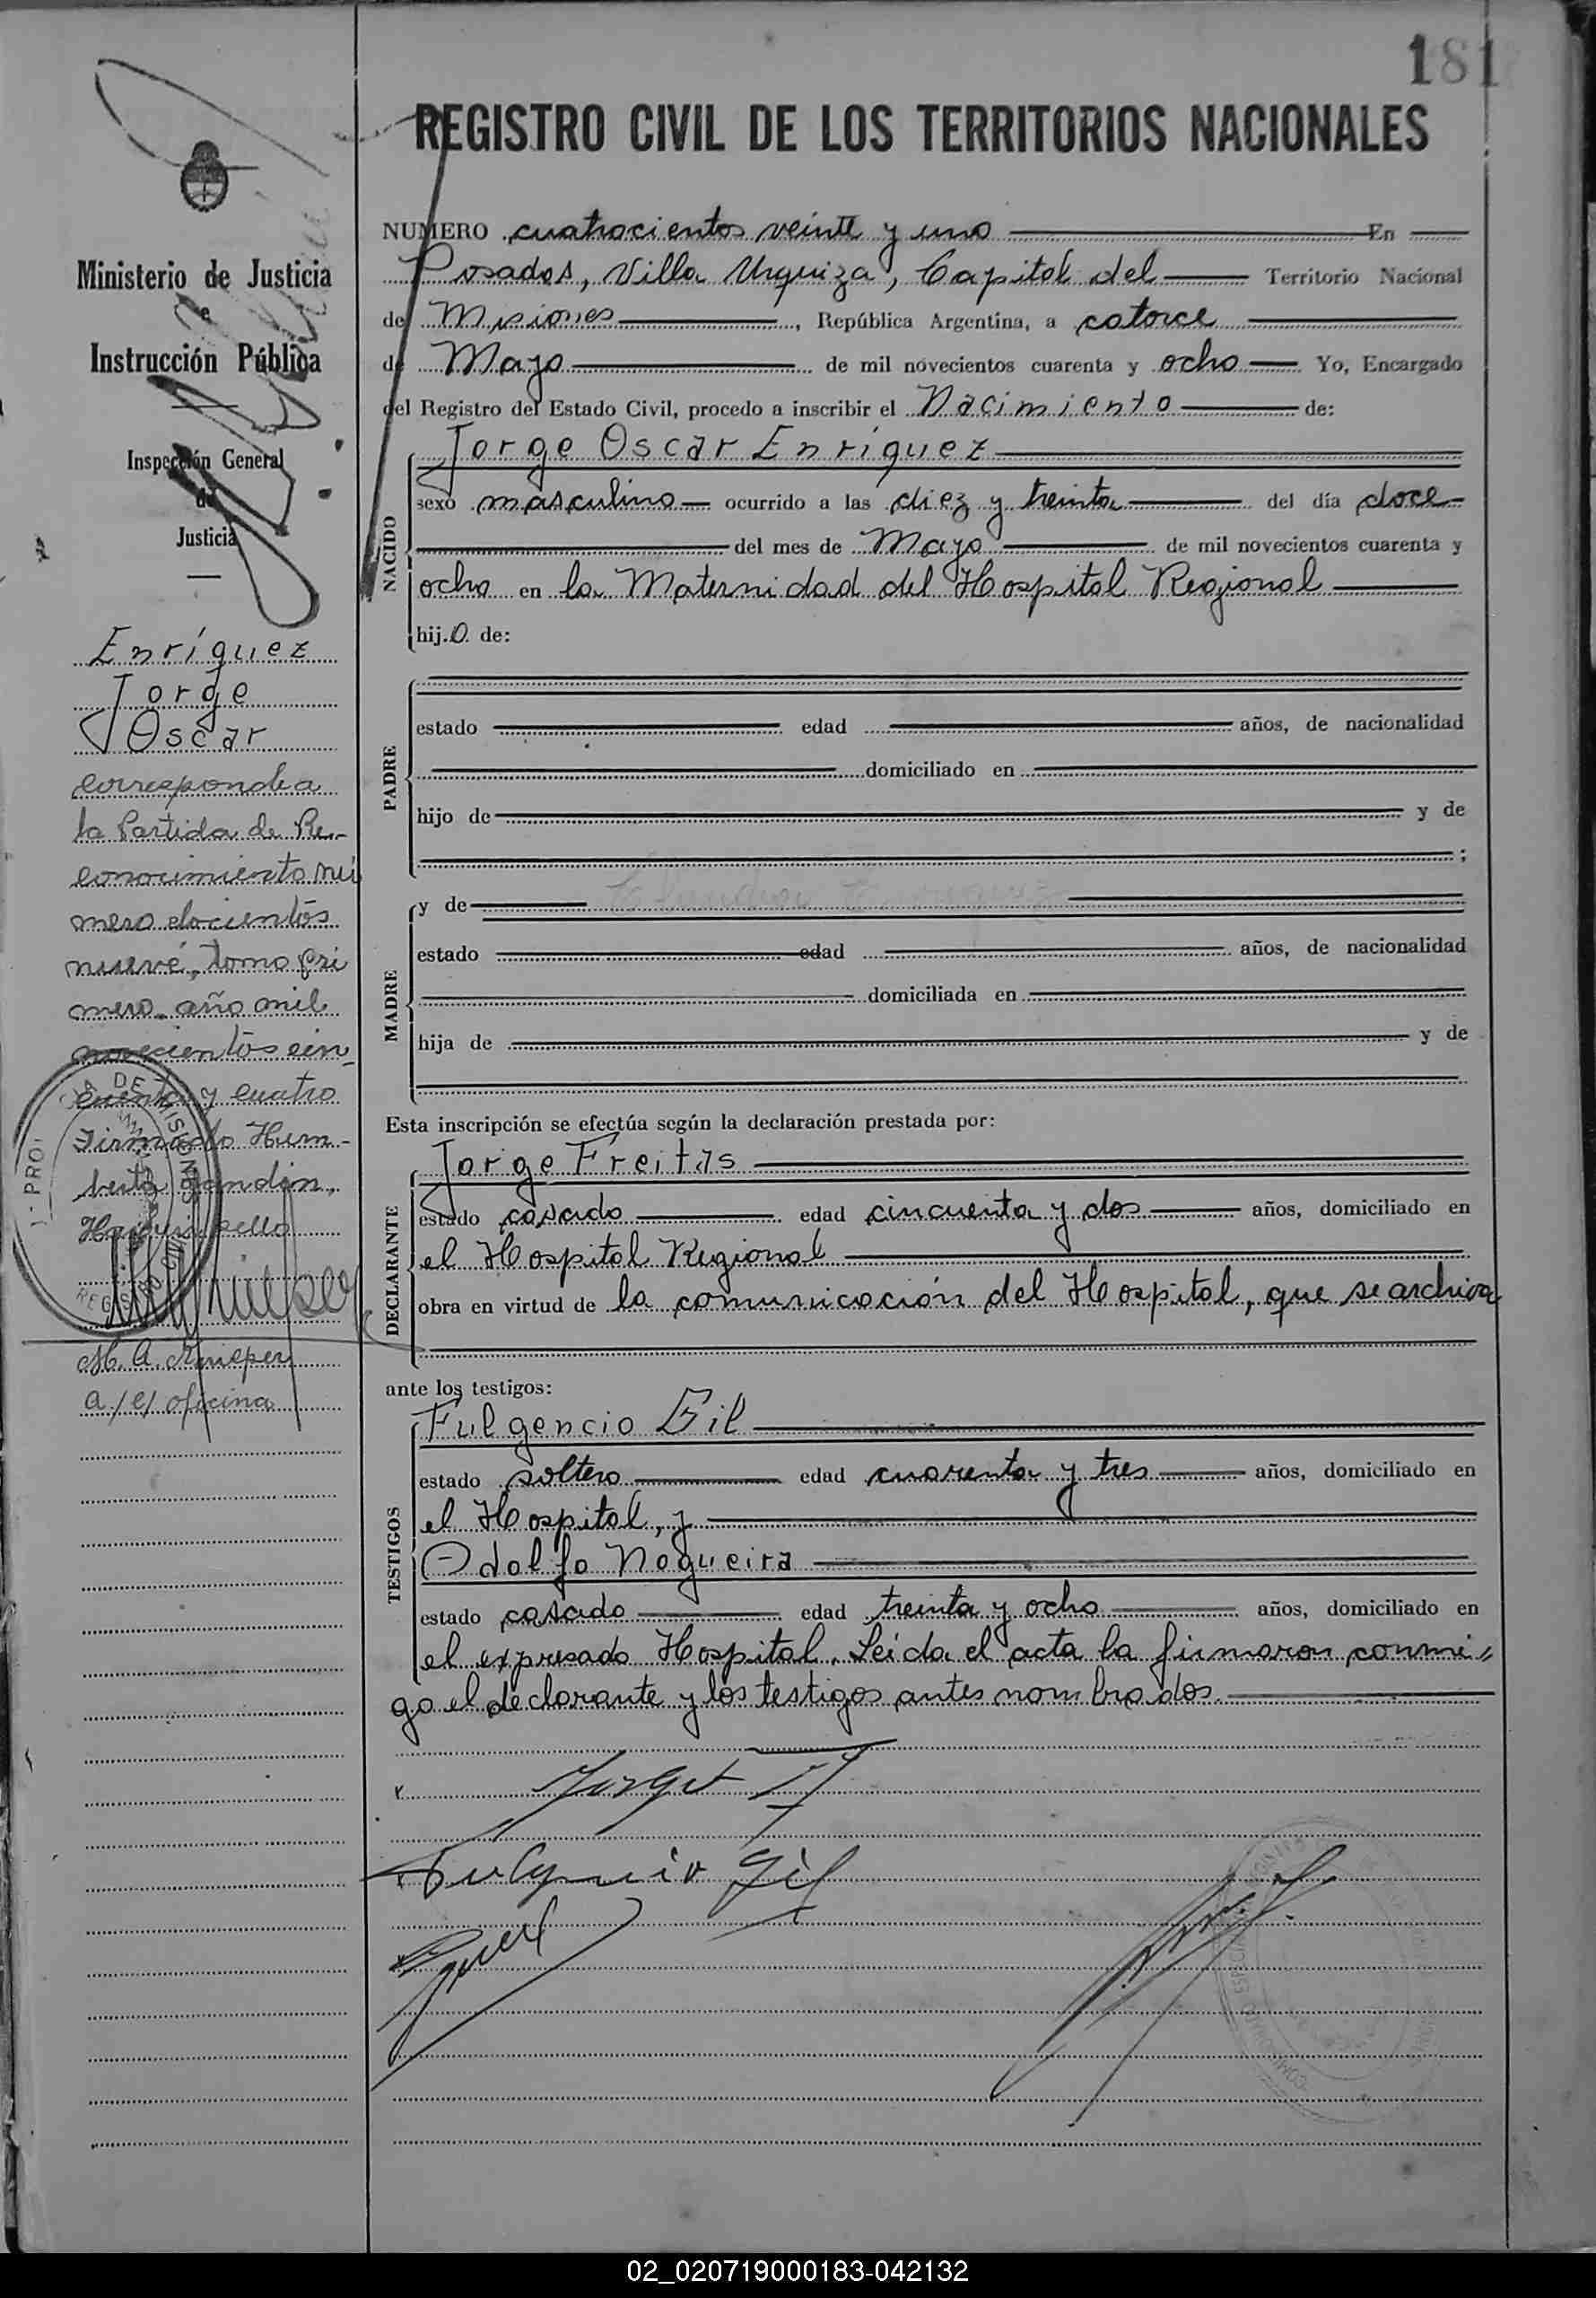 181
REGISTRO CIVIL DE LOS TERRITORIOS NACIONALES
NUMERO cuatrocientos veinte y uno En
Posadas, Villa Urquiza, Capital del Territorio Nacional
de Misiones, República Argentina, a catorce
de Mayo de mil novecientos cuarenta y ocho Yo, Encargado
del Registro del Estado Civil, procedo a inscribir el Nacimiento de:
Jorge Oscar Enríquez
sexo masculino ocurrido a las diez y treinta del día doce
del mes de Mayo de mil novecientos cuarenta y
ocho en la Maternidad del Hospital Regional
hijo de:
NACIDO
estado edad años, de nacionalidad
domiciliado en
hijo de y de
;
PADRE
y de
estado edad años, de nacionalidad
domiciliada en
hija de y de
MADRE
Esta inscripción se efectúa según la declaración prestada por:
Jorge Freitas
estado casado edad cincuenta y dos años, domiciliado en
el Hospital Regional
obra en virtud de la comunicación del Hospital, que se archiva
DECLARANTE
ante los testigos:
Fulgencio Gil
estado soltero edad cuarenta y tres años, domiciliado en
el Hospital, y
Odolfo Nogueira
estado casado edad treinta y ocho años, domiciliado en
el expresado Hospital. Leida el acta la firmaron conmi,,
TESTIGOS
go el declarante y los testigos antes nombrados.
Fulgencio Gil
Ministerio de Justicia
e
Instrucción Pública
Inspección General
de
Justicia
Enríquez
Jorge
Oscar
corresponde a
la Partida de Re-
conocimiento nú
mero docientos
nueve, tomo pri
mero año mil
novecientos cin
cuenta y cuatro
Firmado Hum-
berto
M. A.
a/c/ oficina
02_020719000183-042132